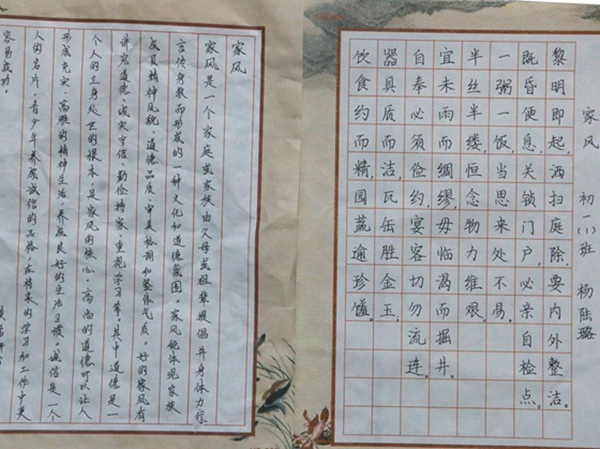 家风 初一(1)班 杨陆璐
黎明即起,洒扫庭除,要内外整洁。
既昏便息,关锁门户,必亲自检点。
一粥一饭,当思来处不易。
半丝半缕,恒念物力维艰。
宜未雨而绸缪,毋临渴而掘井。
自奉必须俭约,宴客切勿流连。
器具质而洁,瓦缶胜金玉。
饮食约而精,园蔬逾珍馐。
家风
家风是一个家庭或家族由父母或祖辈提倡并身体力行、
言传身教而形成的一种文化和道德氛围。家风能体现家族
成员精神风貌、道德品质、审美格调和整体气质。好的家风有
讲究道德、诚实守信、勤俭持家、重视学习等。其中道德是一
个人的立身处世的根本,是家风的核心。高尚的道德可以让人
形成充实、高雅的精神生活,养成良好的生活习惯。诚信是一个
人的名片,青少年养成诚信的品格,在将来的学习和工作中更
容易成功。